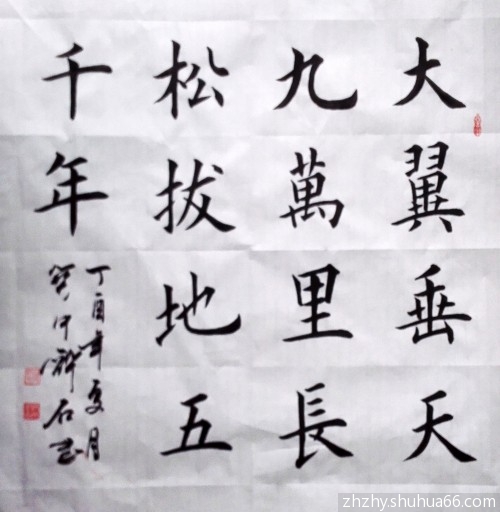 大翼垂天
九萬里長
松拔地五
千年
丁酉年夏月
石
zhzhy.shuhua66.com